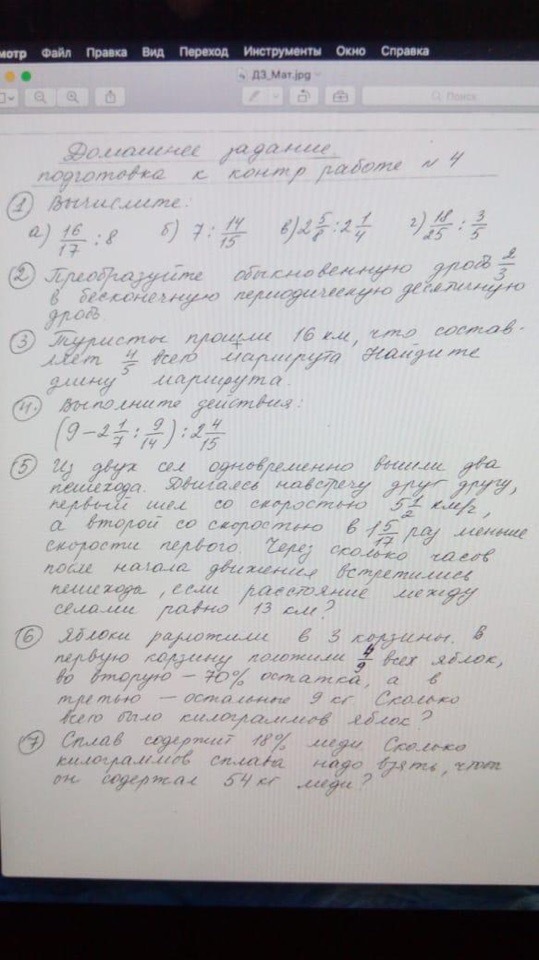 мотр Файл Правка Вид Переход Инструменты Окно Справка
ДЗ_Мат.jpg
Поиск
Домашнее задание
подготовка к контр работе № 4
① Вычислите:
а) 16/17 : 8 б) 7 : 14/15 в) 2 5/8 : 2 1/4 г) 18/25 : 3/5
② Преобразуйте обыкновенную дробь 2/3
в бесконечную периодическую десятичную
дробь
③ Туристы прошли 16 км, что состав-
ляет 4/5 всего маршрута Найдите
длину маршрута.
④. Выполните действия:
(9 - 2 1/7 : 9/14) : 2 4/15
⑤ Из двух сел одновременно вышли два
пешехода. Двигаясь навстречу друг другу,
первый шел со скоростью 5 1/2 км/г,
а второй со скоростью в 1 5/17 раз меньше
скорости первого. Через сколько часов
после начала движения встретились
пешехода, если расстояние между
селами равно 13 км?
⑥ Яблоки разложили в 3 корзины. В
первую корзину положили 4/9 всех яблок,
во вторую – 70% остатка, а в
третью – остальные 9 кг. Сколько
всего было килограммов яблок?
⑦ Сплав содержит 18% меди. Сколько
килограммов сплава надо взять, чтоб
он содержал 54 кг меди?